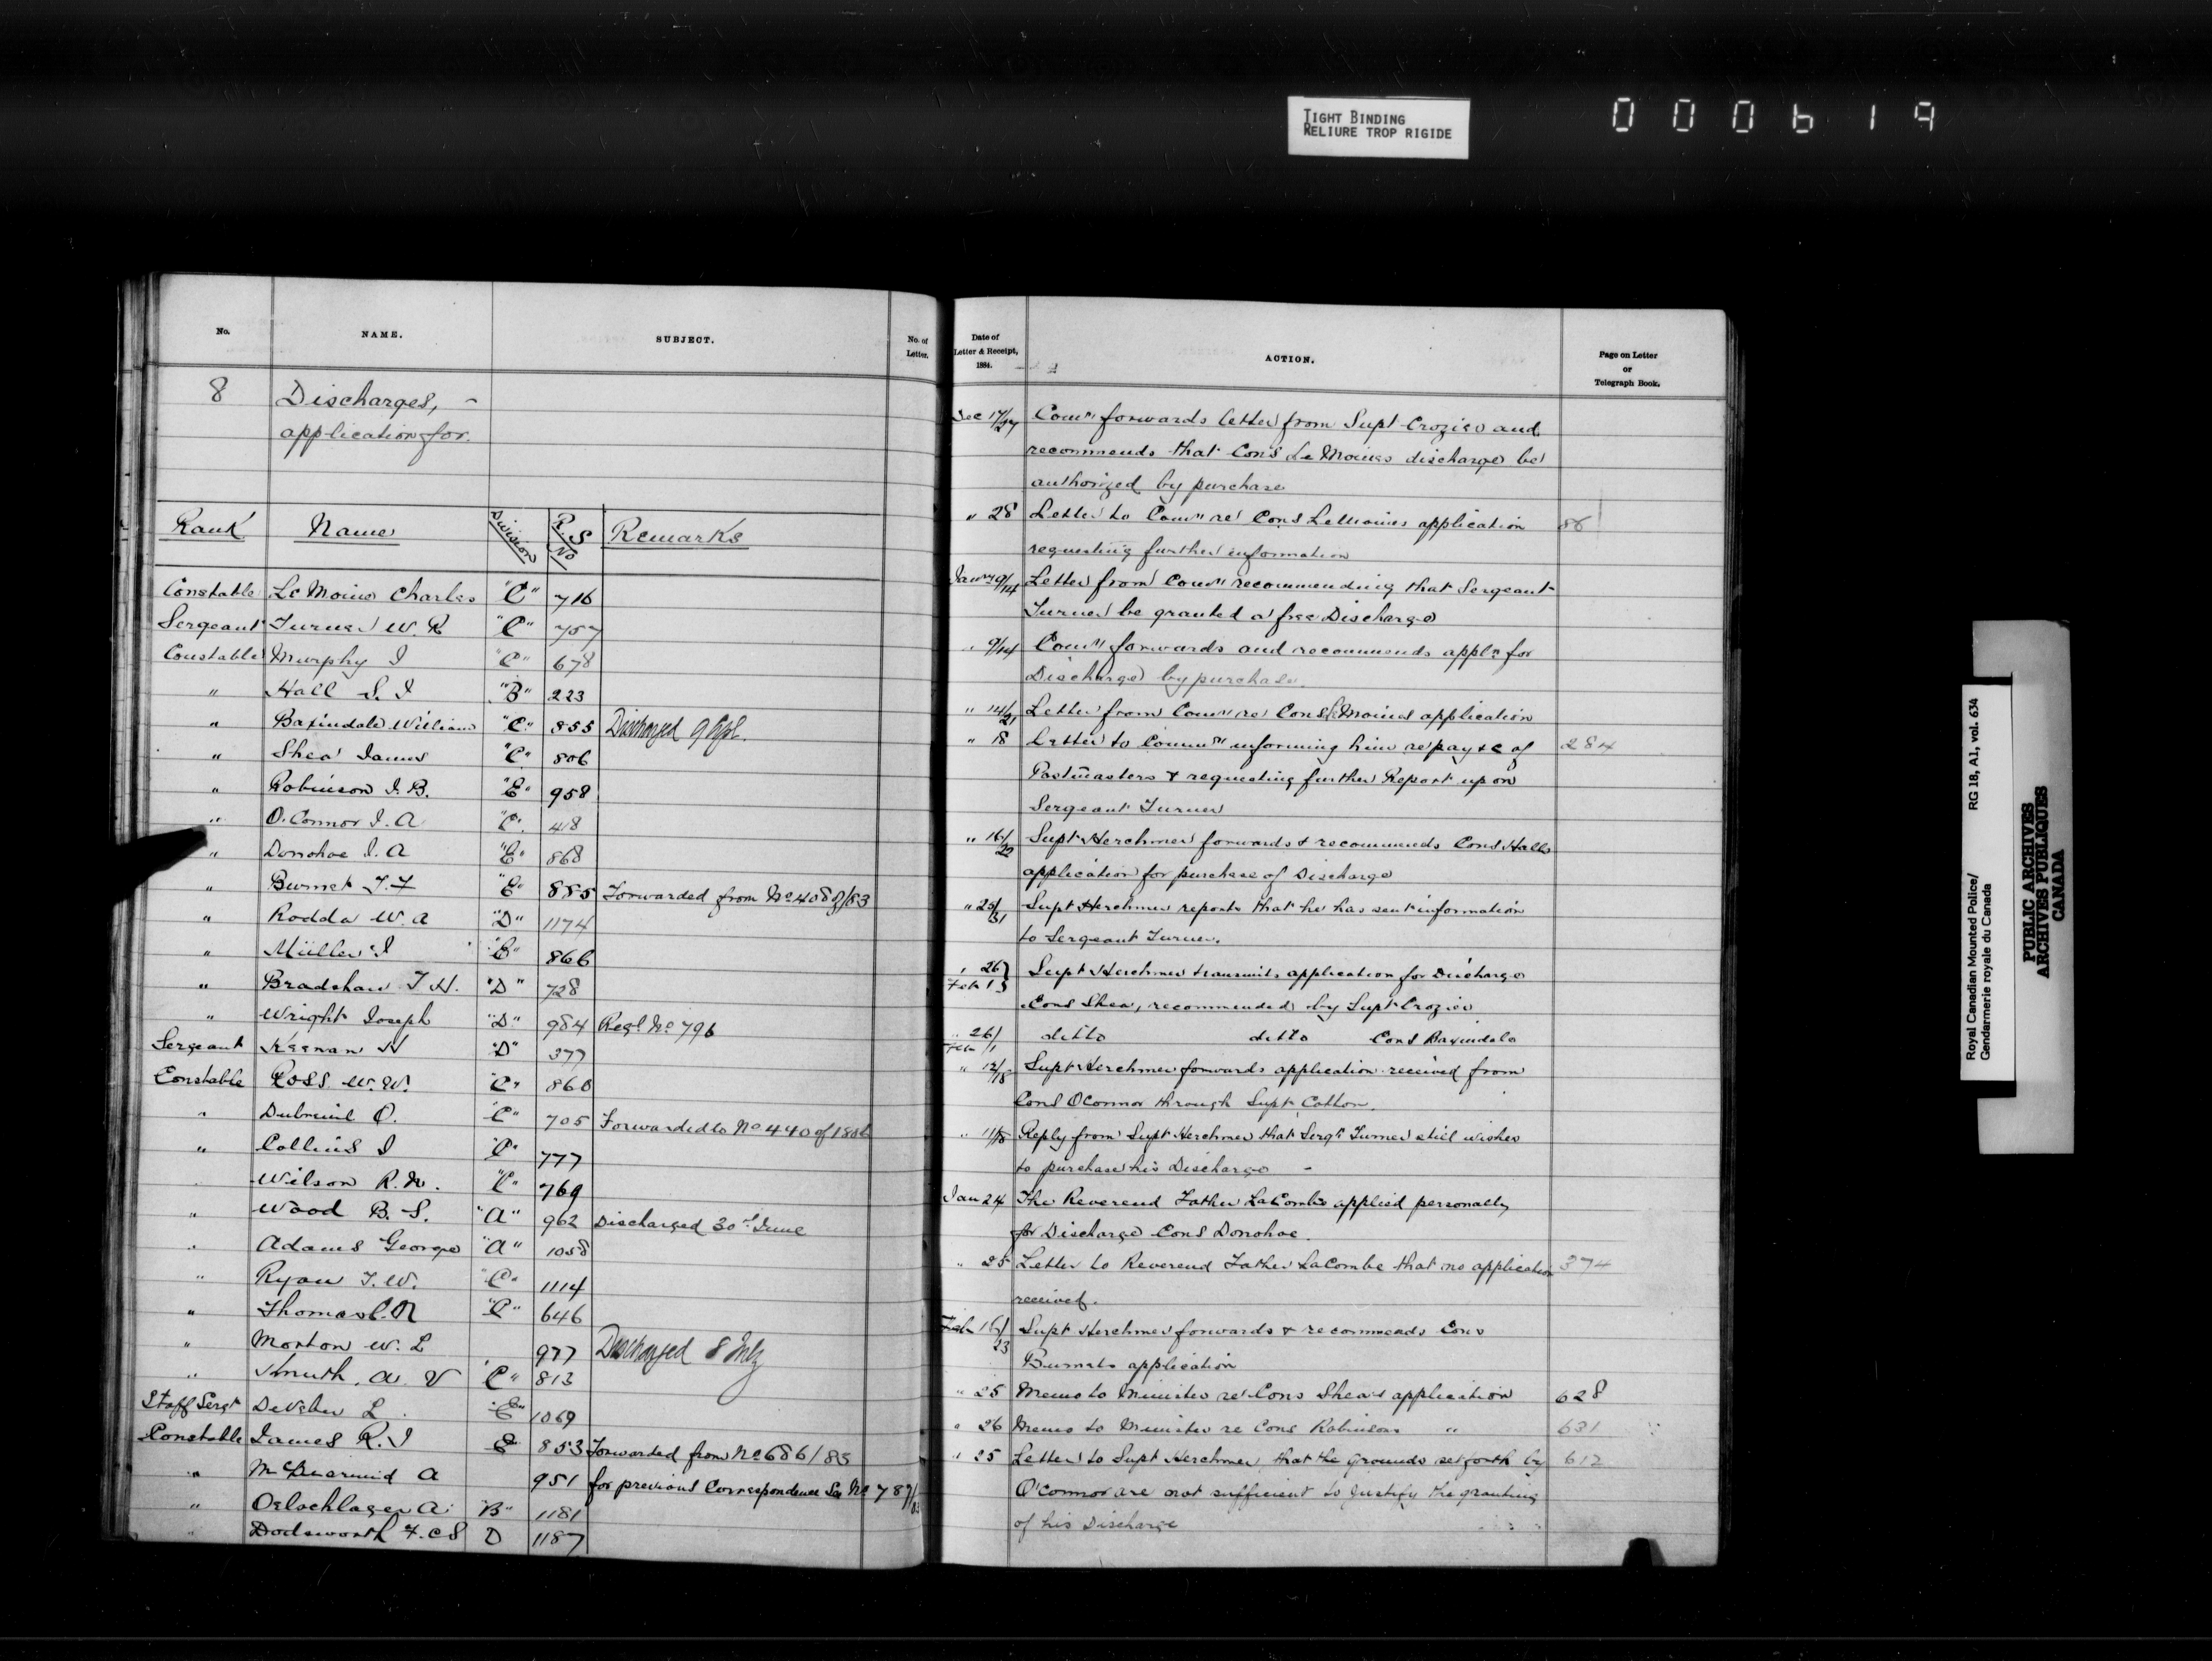 TIGHT BINDING
RELIURE TROP RIGIDE
000619
No.
NAME.
SUBJECT.
No. of
Letter.
8
Discharges, -
application for.
Rank
Name
Division
R.S
No
Remarks
Constable Le Moine Charles "C" 716
Sergeant Turner W. R "C" 757
Constable Murphy J "C" 678
" Hall S. J "B" 223
" Baxindale William "C" 855 Discharged 9 Apl.
" Shea James "C" 806
" Robinson J. B. "E" 958
" O.Connor J. A "C" 418
" Donohoe J. A "E" 868
" Burnet J. F "E" 885 Forwarded from No 408 of/83
" Rodda W. A "D" 1174
" Müller J "E" 866
" Bradshaw T H. "D" 728
" Wright Joseph "D" 984 Regl No 796
Sergeant Keenan H "D" 377
Constable Ross W. W. "C" 860
" Dubreuil O. "C" 705 Forwarded to No 440 of 1886
" Collins J "C" 777
Wilson R. N. "C" 769
" Wood B. S. "A" 962 Discharged 30th June
" Adams George "A" 1058
" Ryan T. W. "C" 1114
" Thomas C. N "C" 646
" Morton W. L 977 Discharged 8 July
" Smuth. A. V "C" 813
Staff Sergt DeVeber L. "E" 1069
Constable James R. J E 853 Forwarded from No 686/83
" McDiarmid A 951 for previous Correspondence See No 787/83
" Oelschlager A. "B" 1181
" Dodsworth F. C S D 1187
Date of
Letter & Receipt,
1884.
ACTION.
Page on Letter
or
Telegraph Book.
Dec 17/27 Comr forwards letter from Supt Crozier and
recommends that Cons Le Moines discharge be
authorized by purchase
" 28 Letter to Comr re Cons LeMoines application 86
requesting further information
Jany 9/14 Letter from Comr recommending that Sergeant
Turner be granted a free Discharge
" 9/14 Comr forwards and recommends appln for
Discharge by purchase.
" 14/21 Letter from Comr re Cons LeMoines application
" 18 Letter to Commr informing him re pay &c of 284
Postmasters & requesting further Report upon
Sergeant Turner
" 16/22 Supt Herchmer forwards & recommends Cons Halls
application for purchase of Discharge
" 25/31 Supt Herchmer reports that he has sent information
to Sergeant Turner.
" 26 } Supt Herchmer transmits application for Discharge
Feb 1 }
Cons Shea, recommended by Supt Crozier
" 26/ ditto ditto Cons Baxindale
Feb /1
" 12/18 Supt Herchmer forwards application received from
Cons OConnor through Supt Cotton.
" 11/18 Reply from Supt Herchmer that Sergt Turner still wishes
to purchase his Discharge -
Jan 24 The Reverend Father LaCombe applied personally
for Discharge Cons Donohoe.
" 25 Letter to Reverend Father LaCombe that no application 374
received.
Feb 16/23 Supt Herchmer forwards & recommends Cons
Burnets application
" 25 Memo to Minister re Cons Shea's application 628
" 26 Memo to Minister re Cons Robinsons " 631
" 25 Letter to Supt Herchmer, that the grounds set forth by 612
O'Connor are not sufficient to justify the granting
of his Discharge
Royal Canadian Mounted Police/ RG 18, A1, vol. 634
Gendarmerie royale du Canada
PUBLIC ARCHIVES
ARCHIVES PUBLIQUES
CANADA